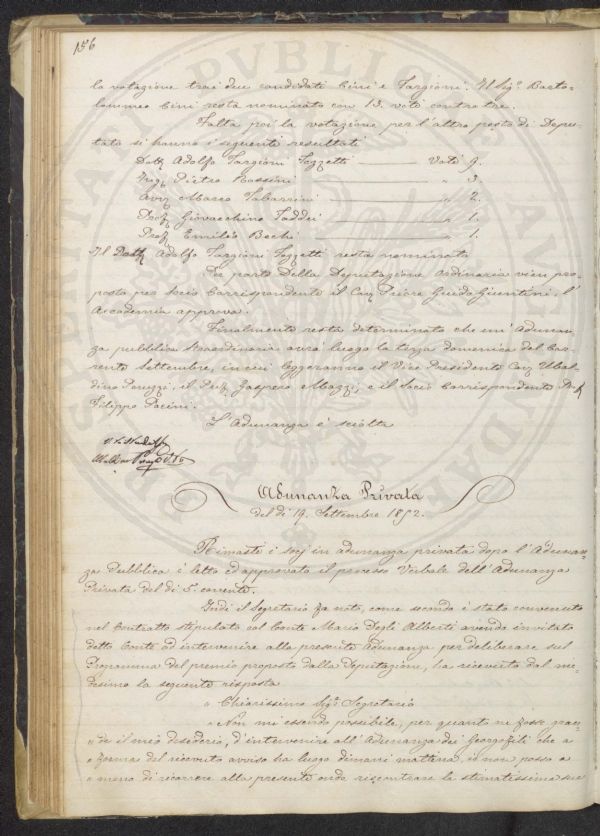 156
la votazione trai due candidati Cini e Targioni. Il Sig.r Barto-
lommeo Cini resta nominato con 13. voti contro tre.
Fatta poi la votazione per l'altro posto di Depu-
tato si hanno i seguenti resultati
Dott. Adolfo Targioni Tozzetti — Voti 9.
Ing. Pietro Rossini — „ 3.
Avv. Marco Tabarrini — „ 2.
Prof. Giovacchino Taddei — „ 1.
Prof. Emilio Bechi — „ 1.
Il Dott. Adolfo Targioni Tozzetti resta nominato
Per parte della Deputazione Ordinaria vien pro-
posta per Socio Corrispondente il Cav. Priore Guido Giuntini, l'
Accademia approva.
Finalmente resta determinato che un' Adunan-
za pubblica straordinaria avrà luogo la terza domenica del Cor-
rente Settembre, in cui leggeranno il Vice Presidente Cav. Ubal-
dino Peruzzi, il Prof. Gaspero Mazzi, e il Socio Corrispondente Prof.
Filippo Pacini.
L'Adunanza è sciolta
Adunanza Privata
del dì 19. Settembre 1852.
Rimasti i Socj in adunanza privata dopo l'Adunan-
za Pubblica è letto ed approvato il processo Verbale dell'Adunanza
Privata del dì 5. corrente.
Indi il Segretario fa noto, come secondo è stato convenuto
nel Contratto stipulato col Conte Mario Degli Alberti avendo invitato
detto Conte ad intervenire alla presente Adunanza per deliberare sul
Programma del premio proposto dalla Deputazione, ha ricevuto dal me-
desimo la seguente risposta
„ Chiarissimo Sig.r Segretario
„ Non mi essendo possibile, per quanto ne fosse gran-
„ de il mio desiderio, d'intervenire all'Adunanza dei Georgofili che a
„ forma del ricevuto avviso ha luogo dimani mattina, io non posso a
„ meno di ricorrere alla presente onde riscontrare la stimatissima sua